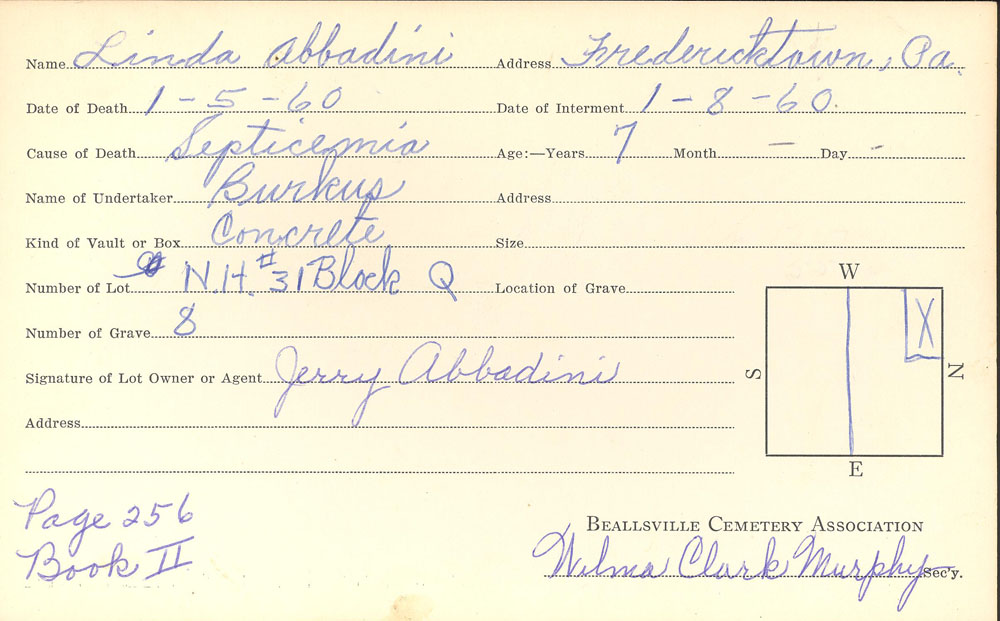 Name Linda Abbadini Address Fredericktown, Pa.
Date of Death 1-5-60 Date of Interment 1-8-60.
Cause of Death Septicemia Age:—Years 7 Month - Day -
Name of Undertaker Burkus Address
Kind of Vault or Box Concrete Size
Number of Lot N.H. #31 Block Q Location of Grave
Number of Grave 8
Signature of Lot Owner or Agent Jerry Abbadini
Address
W
X
S
N
E
Page 256
Book II
BEALLSVILLE CEMETERY ASSOCIATION
Wilma Clark Murphy Sec'y.